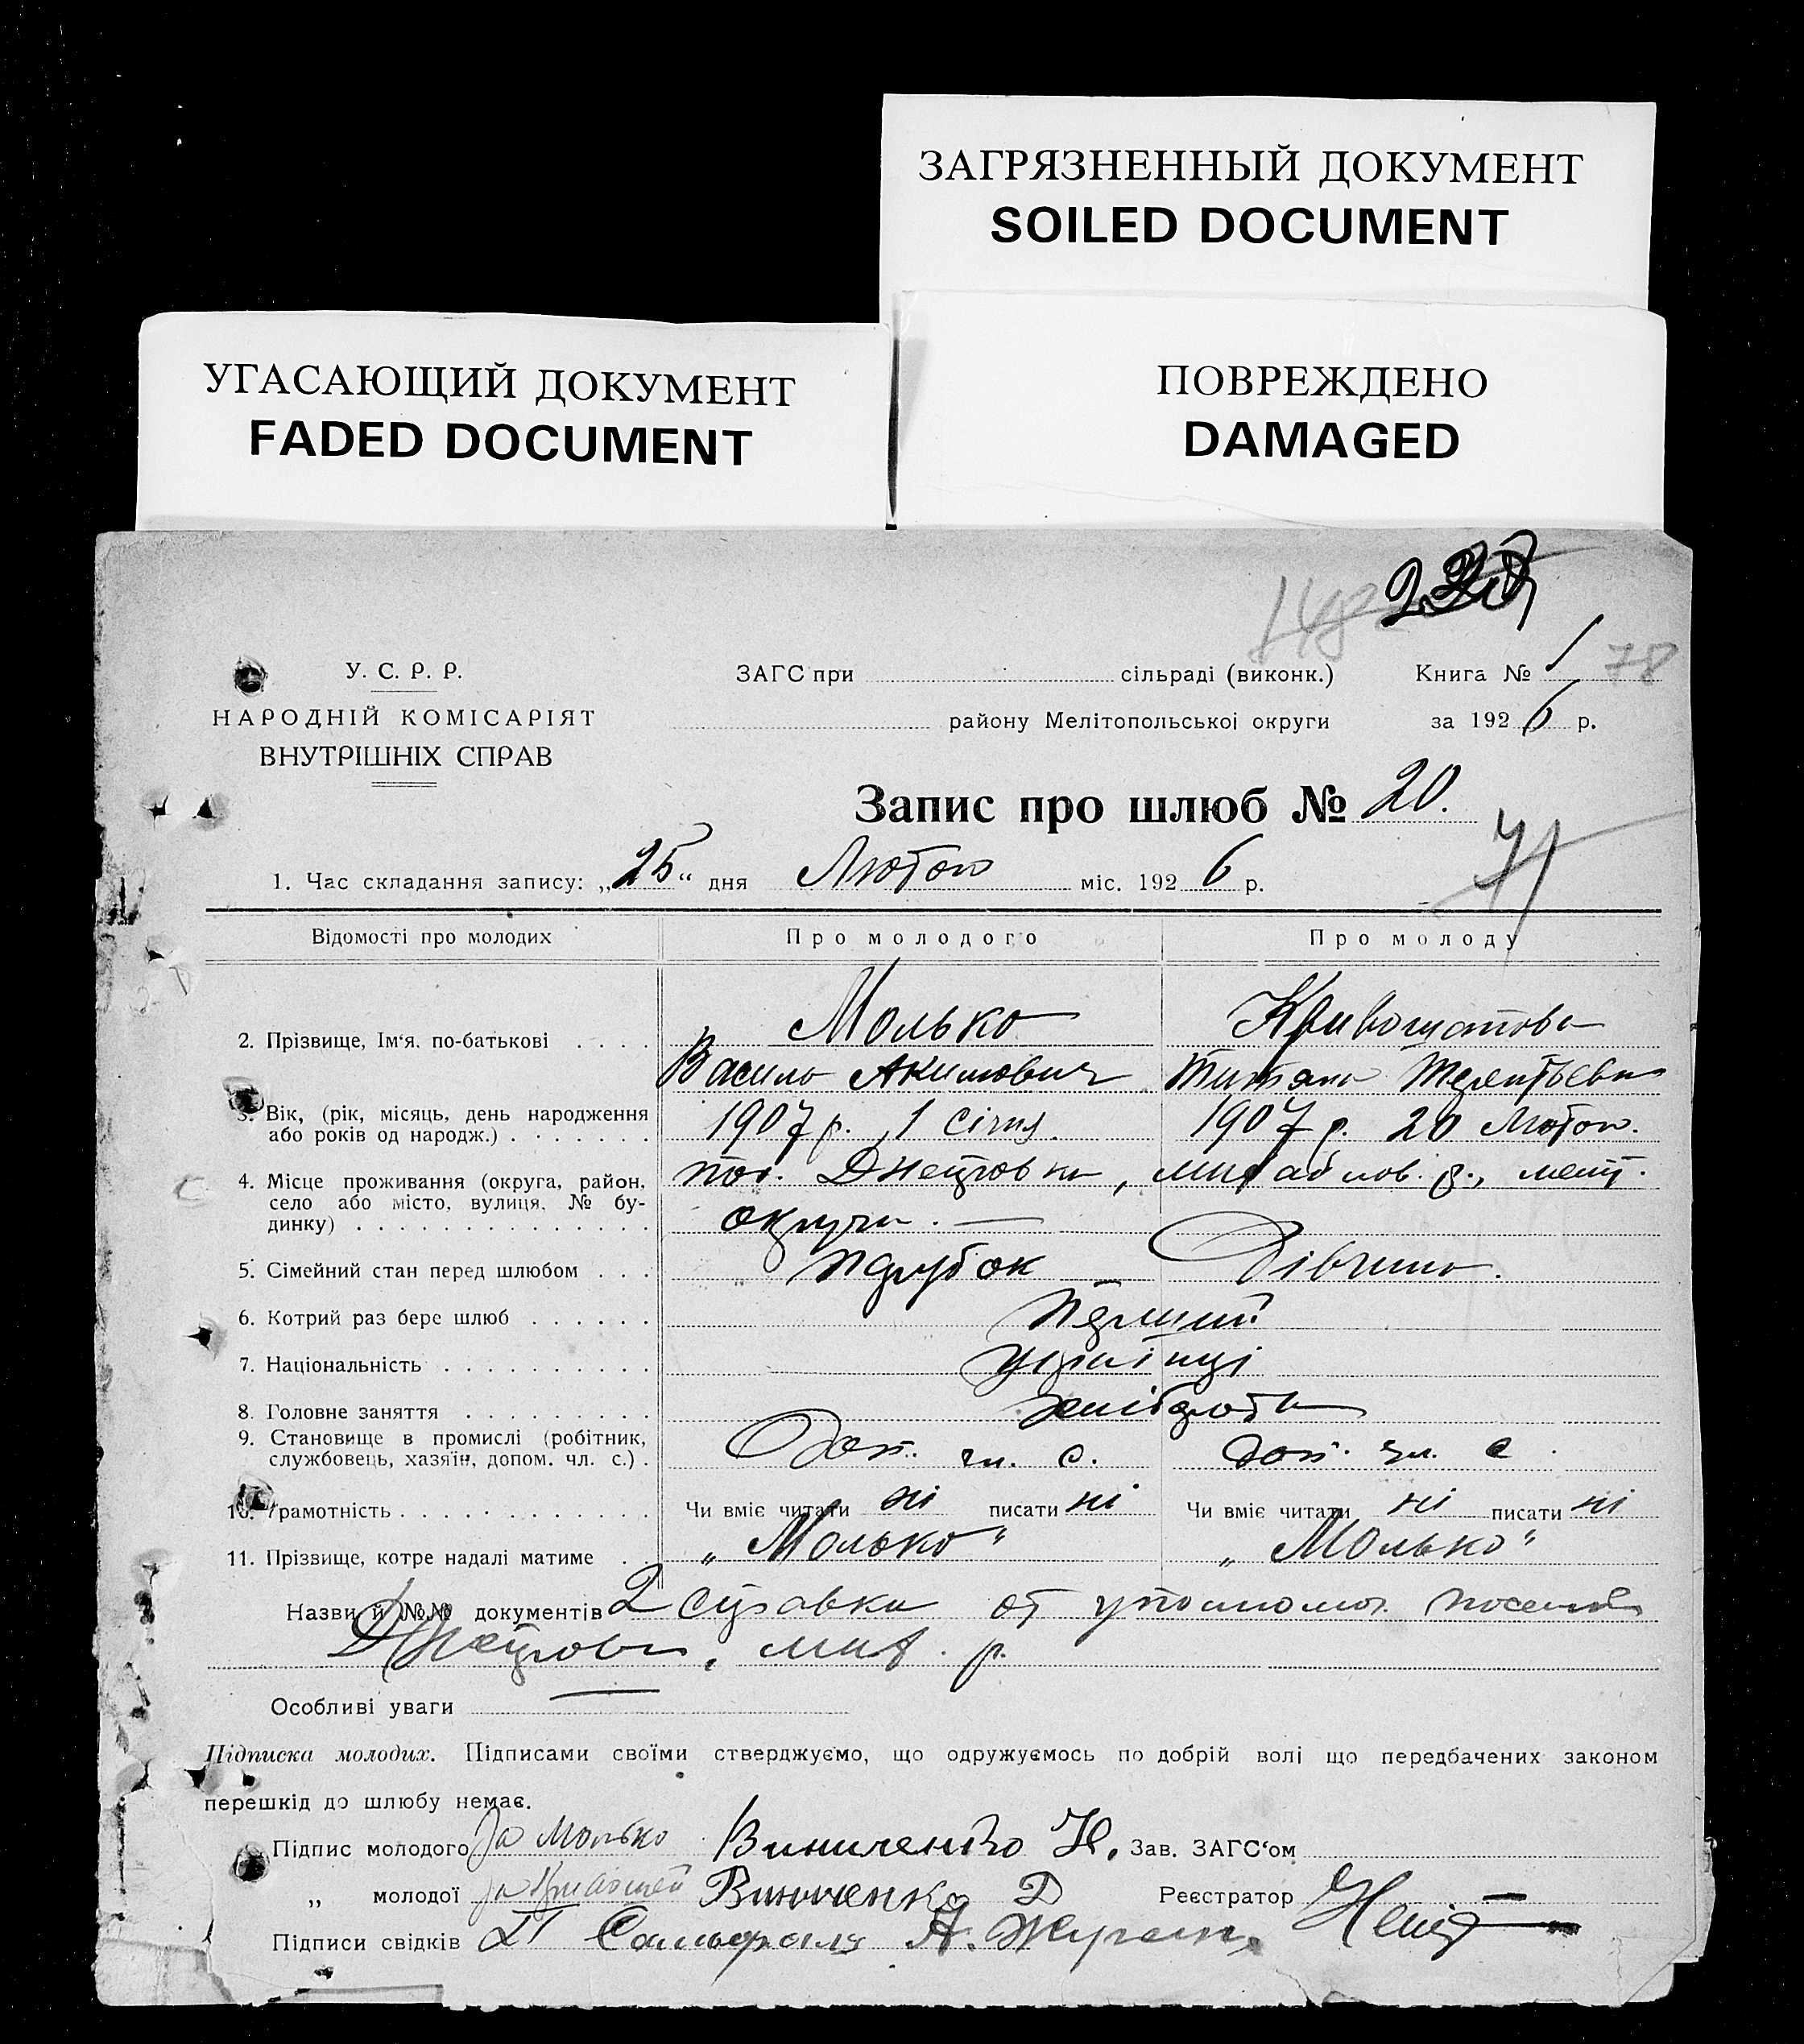 ЗАГРЯЗНЕННЫЙ ДОКУМЕНТ
SOILED DOCUMENT
УГАСАЮЩИЙ ДОКУМЕНТ
FADED DOCUMENT
ПОВРЕЖДЕНО
DAMAGED
148
78
У. С. Р. Р.
НАРОДНІЙ КОМІСАРІЯТ
ВНУТРІШНІХ СПРАВ
ЗАГС при сільраді (виконк.) Книга № 1
району Мелітопольської округи за 1926 р.
Запис про шлюб № 20.
71
1. Час складання запису: „25“ дня Лютого міс. 1926 р.
Відомості про молодих Про молодого Про молоду
2. Прізвище, Ім'я, по-батькові . . . . Молько
Василь Акимович
3. Вік, (рік, місяць, день народження або років од народж.) . . . . . . . 1907 р. 1 січня. 1907 р. 20 Лютого.
4. Місце проживання (округа, район, село або місто, вулиця, № будинку) . . . . . . . . . . . . . . пос. , михайлов. р., меліт.
округи.
5. Сімейний стан перед шлюбом . . . парубок Дівчина.
6. Котрий раз бере шлюб . . . . . . Перший
7. Національність . . . . . . . . . . українці
8. Головне заняття . . . . . . . . . хліборобство
9. Становище в промислі (робітник, службовець, хазяїн, допом. чл. с.) . Доп. чл. с. Доп. чл. с.
10. Грамотність . . . . . . . . . . . . Чи вміє читати ні писати ні Чи вміє читати ні писати ні
11. Прізвище, котре надалі матиме . „Молько“ „Молько“
Назви й №№ документів 2 справки от уполномоч. поселка
, мих. р.
Особливі уваги
Підписка молодих. Підписами своїми стверджуємо, що одружуємось по добрій волі що передбачених законом
перешкід до шлюбу немає.
Підпис молодого За Молько Виниченко Н. Зав. ЗАГС'ом
„ молодої За Винниченко Д Реєстратор
Підписи свідків